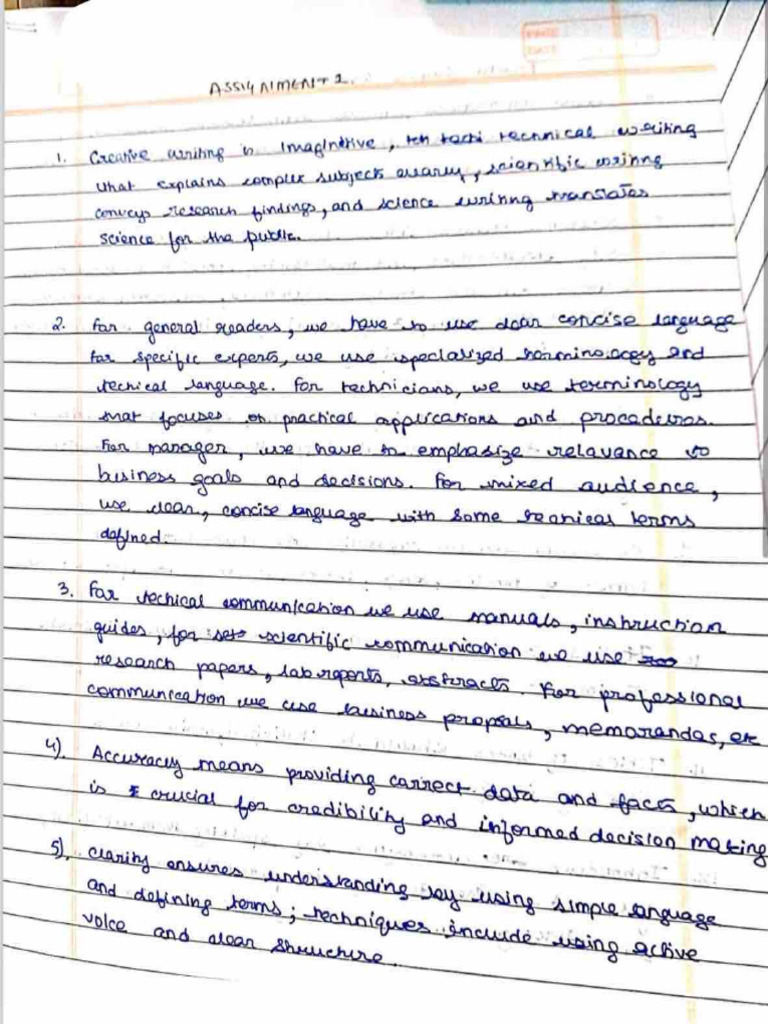 ASSIGNMENT 1.
1. Creative writing is imaginitive, technical writing
what explains complex subjects clearly, scientific writing
conveys research findings, and science writing translates
science for the public.
2. For general readers, we have to use clear concise language
for specific experts, we use specialized terminology and
techical language. For technicians, we use terminology
that focuses on practical applications and procedures.
For manager, we have to emphasize relavance to
business goals and decisions. For mixed audience,
use clear, concise language with some technical terms
defined.
3. For techical communication we use manuals, instruction
guides, for scientific communication we use
research papers, lab reports, abstracts. For professional
communication we use business propsals, memorandas, etc
4). Accuracy means providing correct data and facts, which
is crucial for credibility and informed decision making
5). Clarity ensures understanding by using simple language
and defining terms; techniques include using active
voice and clear structure.